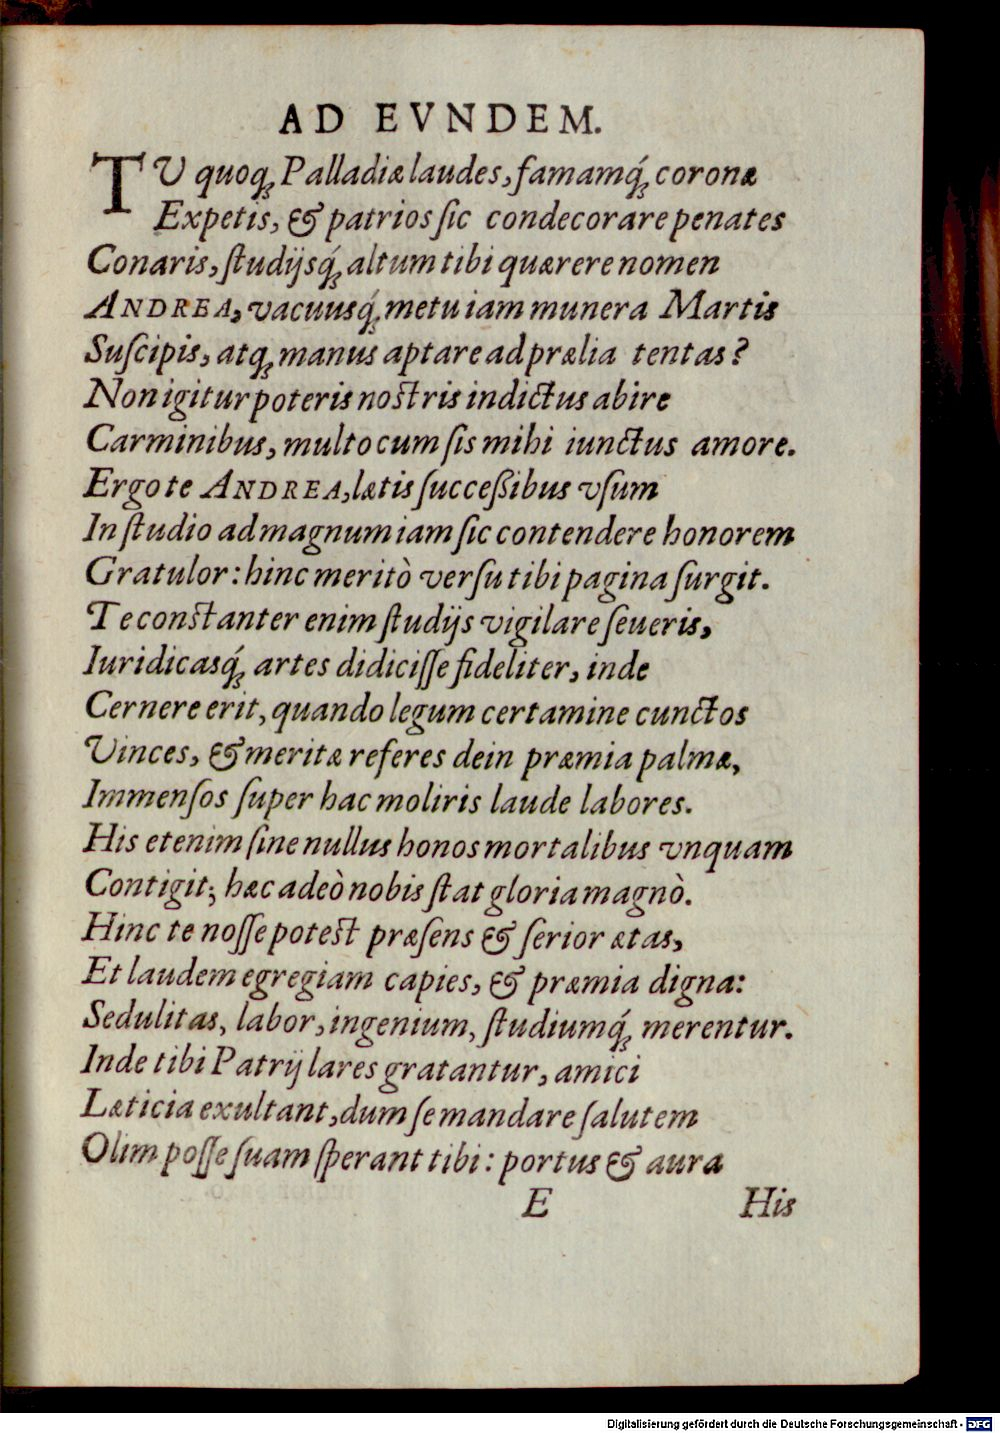 AD EVNDEM.
TV quoq́ꝫ Palladiæ laudes, famamq́ꝫ coronæ
Expetis, & patrios ſic condecorare penates
Conaris, ſtudijsq́ꝫ altum tibi quærere nomen
ANDREA, vacuusq́ꝫ metu iam munera Martis
Suſcipis, atqꝫ manus aptare ad prælia tentas?
Non igitur poteris noſtris indictus abire
Carminibus, multo cum ſis mihi iunctus amore.
Ergo te ANDREA, lætis ſucceßibus vſum
In ſtudio ad magnum iam ſic contendere honorem
Gratulor: hinc meritò verſu tibi pagina ſurgit.
Te conſtanter enim ſtudijs vigilare ſeueris,
Iuridicasq́ꝫ artes didiciſſe fideliter, inde
Cernere erit, quando legum certamine cunctos
Vinces, & meritæ referes dein præmia palmæ,
Immenſos ſuper hac moliris laude labores.
His etenim ſine nullus honos mortalibus vnquam
Contigit; hæc adeò nobis ſtat gloria magnò.
Hinc te noſſe poteſt præſens & ſerior ætas,
Et laudem egregiam capies, & præmia digna:
Sedulitas, labor, ingenium, ſtudiumq́ꝫ merentur.
Inde tibi Patrij lares gratantur, amici
Læticia exultant, dum ſe mandare ſalutem
Olim poſſe ſuam ſperant tibi: portus & aura
E His
Digitalisierung gefördert durch die Deutsche Forschungsgemeinschaft - DFG